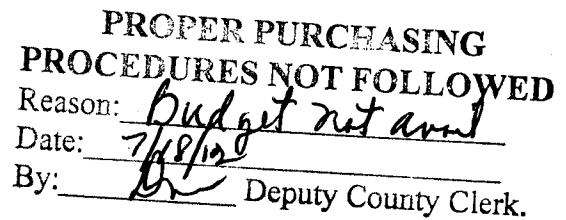 PROPER PURCHASING
PROCEDURES NOT FOLLOWED
Reason: Budget not avail
Date: 7/18/12
By: Deputy County Clerk.